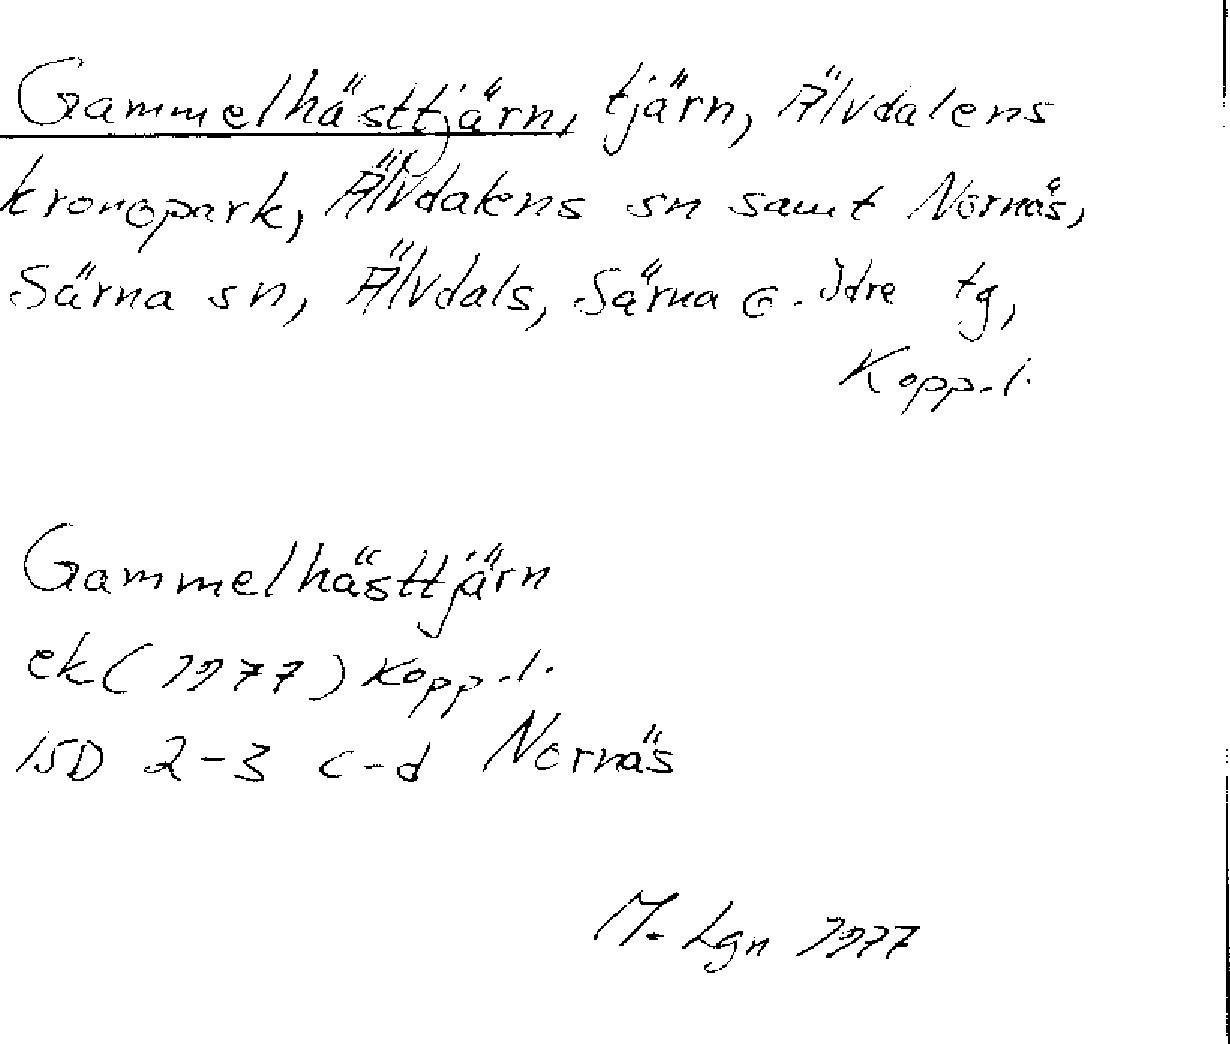 Gammelhästtjärn, tjärn, Älvdalens
kronopark, Älvdalens sn samt Nornäs,
Särna sn, Älvdals, Särna o. Idre tg,
Kopp. l.
Gammelhästtjärn
ek (1977) Kopp. l.
15D 2-3 c-d Nornäs
M. Lgn 1977